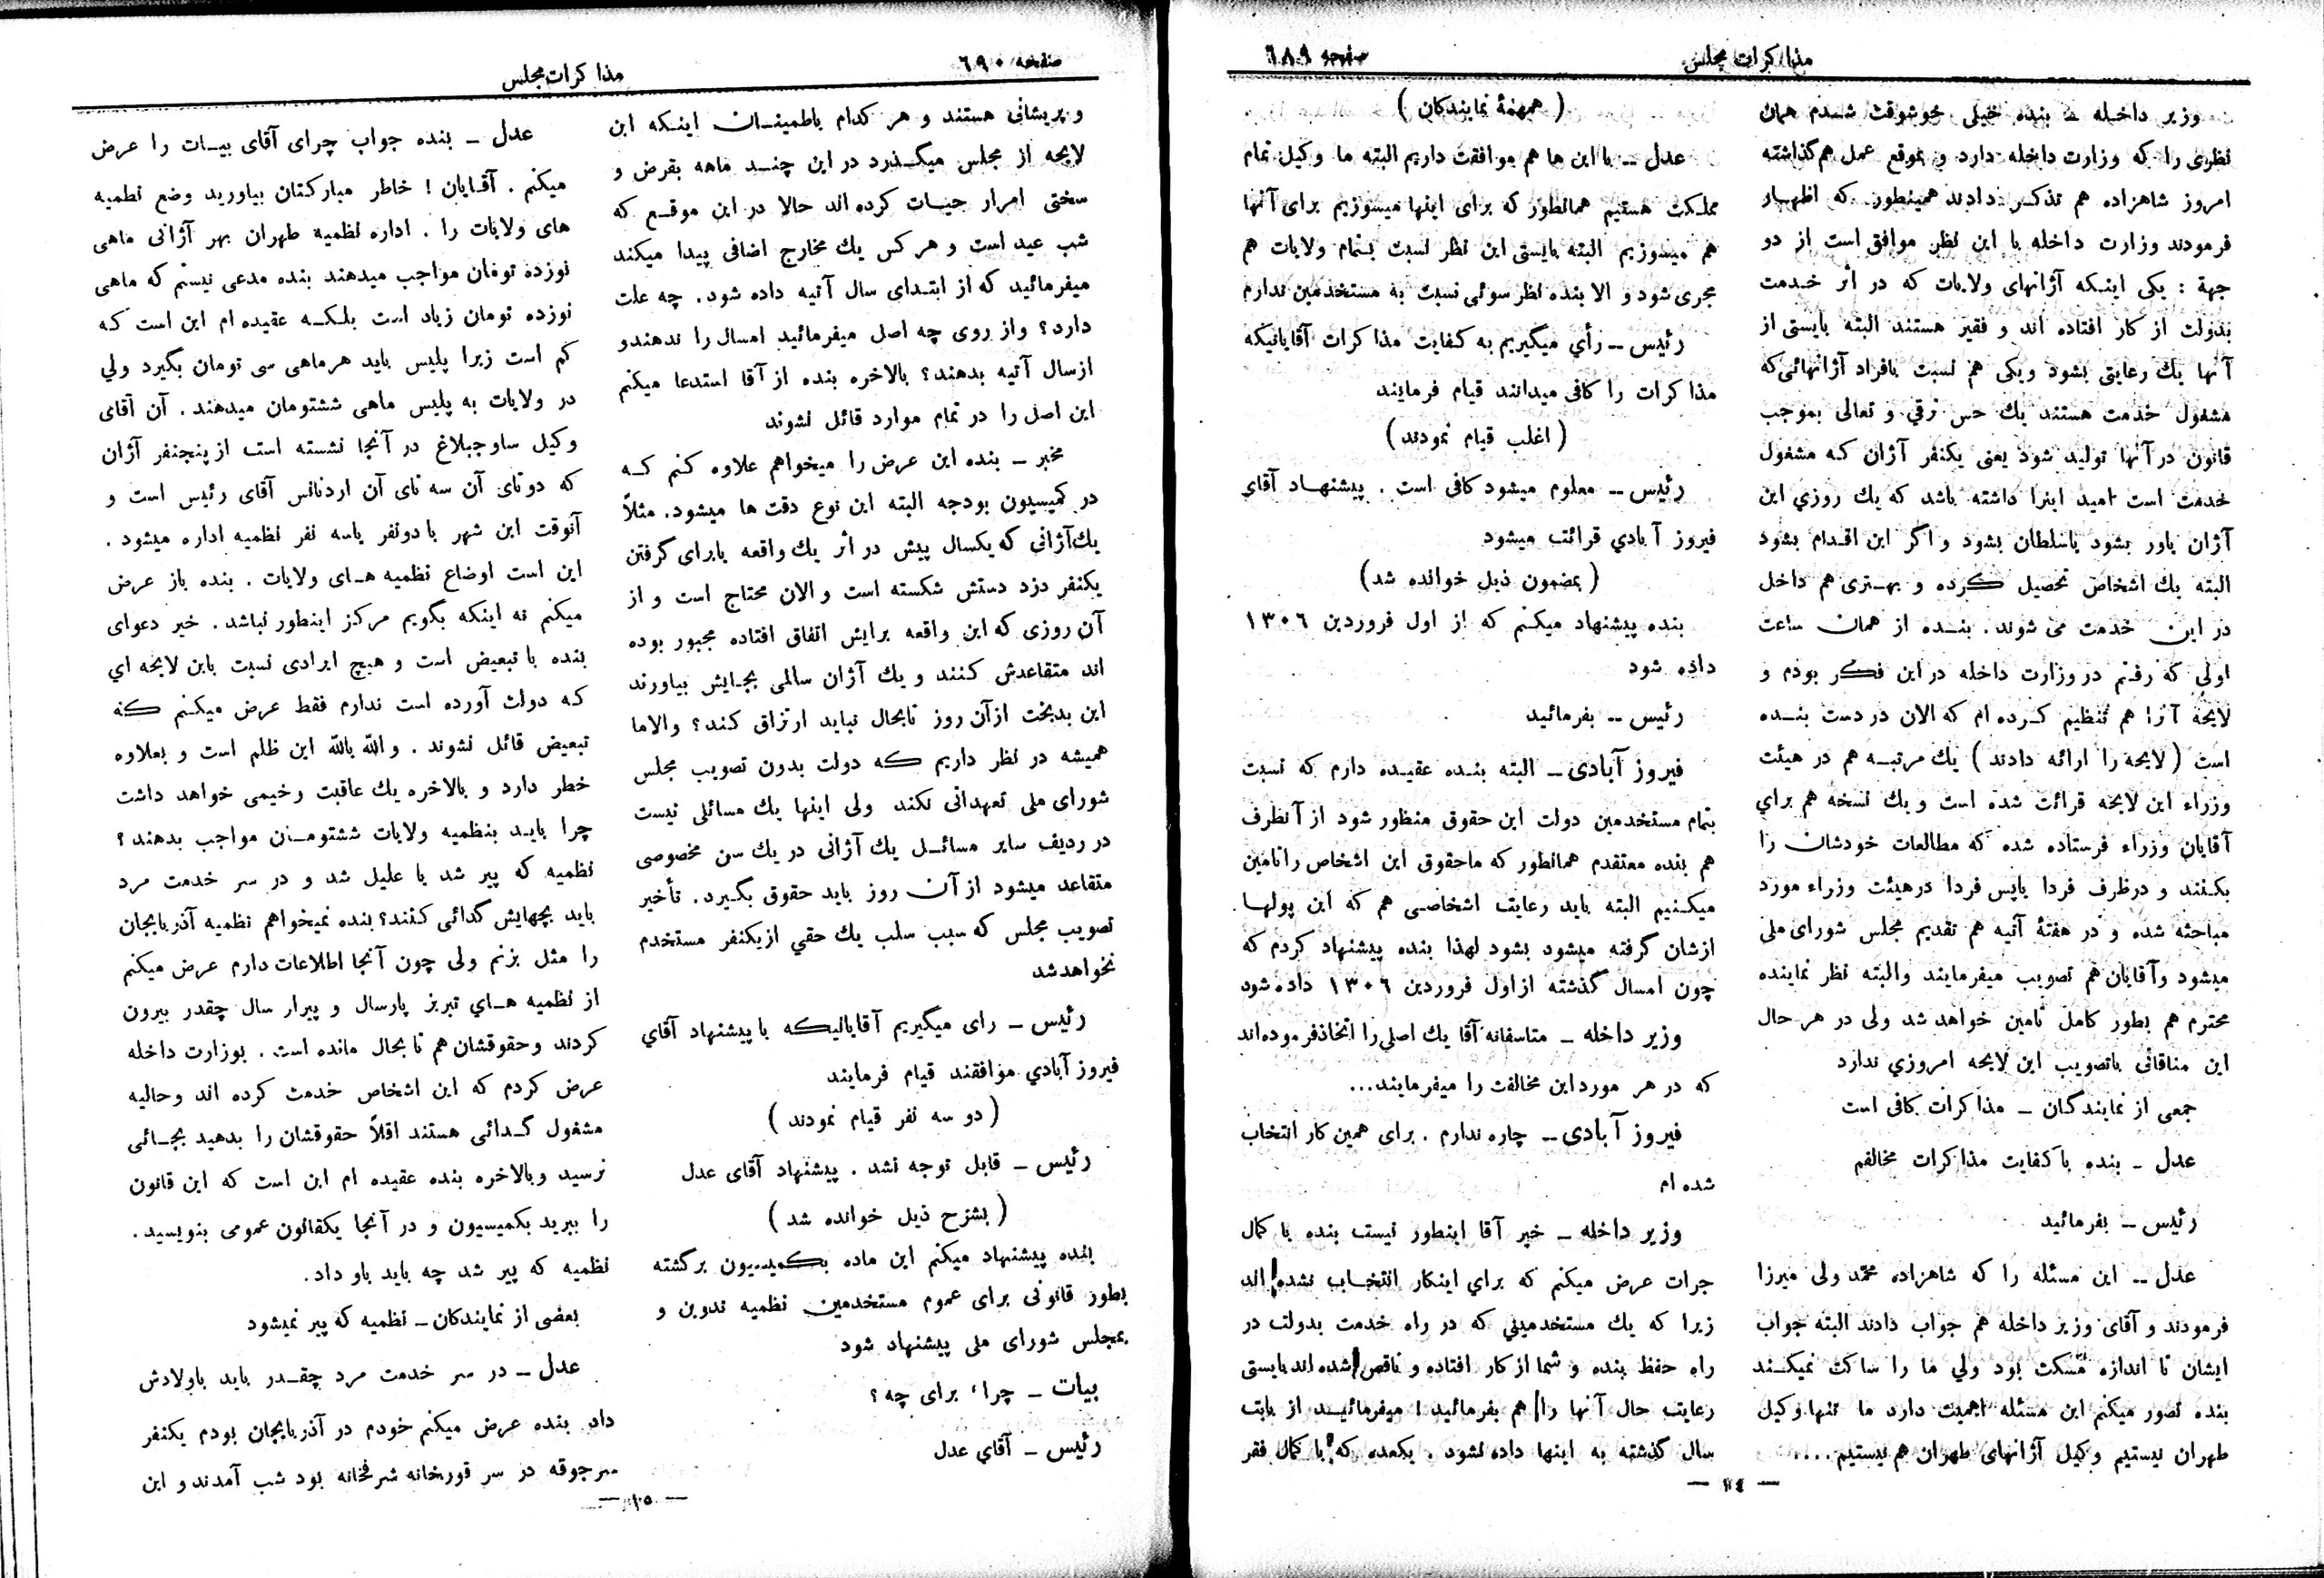 مذاکرات مجلس
صفحه ٦٨٩
وزیر داخله ـ بنده خیلی خوشوقت شدم همان
نظری را که وزارت داخله دارد و بموقع عمل هم گذاشته
امروز شاهزاده هم تذکر دادند همینطور که اظهار
فرمودند وزارت داخله با این نظر موافق است از دو
جهة : یکی اینکه آژانهای ولایات که در اثر خدمت
بدولت از کار افتاده اند و فقیر هستند البته بایستی از
آنها یك رعایتی بشود ویکی هم نسبت بافراد آژانهائی که
مشغول خدمت هستند یك حس ترقی و تعالی بموجب
قانون در آنها تولید شود یعنی یکنفر آژان که مشغول
خدمت است امید اینرا داشته باشد که یك روزي این
آژان یاور بشود یاسلطان بشود و اگر این اقدام بشود
البته یك اشخاص تحصیل کرده و بهتری هم داخل
در این خدمت می شوند. بنده از همان ساعت
اولی که رفتم در وزارت داخله در این فکر بودم و
لایحهٔ آنرا هم تنظیم کرده ام که الان در دست بنده
است (لایحه را ارائه دادند) یك مرتبه هم در هیئت
وزراء این لایحه قرائت شده است و یك نسخه هم برای
آقایان وزراء فرستاده شده که مطالعات خودشان را
بکنند و درظرف فردا یاپس فردا درهیئت وزراء مورد
مباحثه شده و در هفتهٔ آتیه هم تقدیم مجلس شورای ملی
میشود وآقایان هم تصویب میفرمایند والبته نظر نماینده
محترم هم بطور کامل تامین خواهد شد ولی در هر حال
این منافاتی باتصویب این لایحه امروزي ندارد
جمعی از نمایندگان ـ مذاکرات کافی است
عدل ـ بنده با کفایت مذاکرات مخالفم
رئیس ـ بفرمائید
عدل ـ این مسئله را که شاهزاده محمّد ولی میرزا
فرمودند و آقای وزیر داخله هم جواب دادند البته جواب
ایشان تا اندازه مسکت بود ولي ما را ساکت نمیکند
بنده تصور میکنم این مسئله اهمیت دارد ما تنها وکیل
طهران نیستیم وکیل آژانهای طهران هم نیستیم....
(همهمهٔ نمایندکان)
عدل ـ با این ها هم موافقت داریم البته ما وکیل تمام
مملکت هستیم همانطور که برای اینها میسوزیم برای آنها
هم میسوزیم البته بایستی این نظر نسبت بتمام ولایات هم
مجری شود و الا بنده نظر سوئی نسبت به مستخدمین ندارم
رئیس ـ رأي میگیریم به کفایت مذاکرات آقایانیکه
مذاکرات را کافی میدانند قیام فرمایند
(اغلب قیام نمودند)
رئیس ـ معلوم میشود کافی است . پیشنهاد آقاي
فیروز آبادي قرائت میشود
(بمضمون ذیل خوانده شد)
بنده پیشنهاد میکنم که از اول فروردین ١٣٠٦
داده شود
رئیس ـ بفرمائید
فیروز آبادی ـ البته بنده عقیده دارم که نسبت
بتمام مستخدمین دولت این حقوق منظور شود از آنطرف
هم بنده معتقدم همانطور که ماحقوق این اشخاص راتامین
میکنیم البته باید رعایت اشخاصی هم که این پولها
ازشان گرفته میشود بشود لهذا بنده پیشنهاد کردم که
چون امسال گذشته ازاول فروردین ١٣٠٦ داده شود
وزیر داخله ـ متاسفانه آقا یك اصلی را اتخاذفرموده اند
که در هر مورد این مخالفت را میفرمایند...
فیروز آبادی ـ چاره ندارم . برای همین کار انتخاب
شده ام
وزیر داخله ـ خیر آقا اینطور نیست بنده با کمال
جرات عرض میکنم که براي اینکار انتخاب نشده اند
زیرا که یك مستخدمیني که در راه خدمت بدولت در
راه حفظ بنده و شما از کار افتاده و ناقص شده اند بایستی
رعایت حال آنها را هم بفرمائید ! میفرمائید از بابت
سال گذشته به اینها داده نشود . یکعده که با کمال فقر
— ١٤ —
صفحه ٦٩٠
مذاکرات مجلس
و پریشانی هستند و هر کدام باطمینان اینکه این
لایحه از مجلس میگذرد در این چند ماهه بقرض و
سختی امرار حیات کرده اند حالا در این موقع که
شب عید است و هر کس یك مخارج اضافی پیدا میکند
میفرمائید که از ابتدای سال آتیه داده شود. چه علت
دارد؟ واز روی چه اصل میفرمائید امسال را ندهندو
ازسال آتیه بدهند؟ بالاخره بنده از آقا استدعا میکنم
این اصل را در تمام موارد قائل نشوند
مخبر ـ بنده این عرض را میخواهم علاوه کنم که
در کمیسیون بودجه البته این نوع دقت ها میشود. مثلاً
یك آژانی که یکسال پیش در اثر یك واقعه یابرای گرفتن
یکنفر دزد دستش شکسته است و الان محتاج است و از
آن روزی که این واقعه برایش اتفاق افتاده مجبور بوده
اند متقاعدش کنند و یك آژان سالمی بجایش بیاورند
این بدبخت ازآن روز تابحال نباید ارتزاق کند؟ والاما
همیشه در نظر داریم که دولت بدون تصویب مجلس
شورای ملی تعهداتی نکند ولی اینها یك مسائلی نیست
در ردیف سایر مسائل یك آژانی در یك سن مخصوصی
متقاعد میشود از آن روز باید حقوق بگیرد. تأخیر
تصویب مجلس که سبب سلب یك حقي ازیکنفر مستخدم
نخواهدشد
رئیس ـ رای میگیریم آقایانیکه با پیشنهاد آقاي
فیروز آبادي موافقند قیام فرمایند
(دو سه نفر قیام نمودند)
رئیس ـ قابل توجه نشد . پیشنهاد آقای عدل
(بشرح ذیل خوانده شد)
بنده پیشنهاد میکنم این ماده بکمیسیون برگشته
بطور قانونی برای عموم مستخدمین نظمیه تدوین و
بمجلس شورای ملی پیشنهاد شود
بیات ـ چرا؛ برای چه ؟
رئیس ـ آقاي عدل
عدل ـ بنده جواب چرای آقای بیات را عرض
میکنم . آقایان ! خاطر مبارکتان بیاورید وضع نظمیه
های ولایات را . اداره نظمیه طهران بهر آژانی ماهی
نوزده تومان مواجب میدهند بنده مدعی نیستم که ماهی
نوزده تومان زیاد است بلکه عقیده ام این است که
کم است زیرا پلیس باید هرماهی سی تومان بگیرد ولي
در ولایات به پلیس ماهی ششتومان میدهند . آن آقای
وکیل ساوجبلاغ در آنجا نشسته است از پنجنفر آژان
که دوتای آن سه تای آن اردنانس آقای رئیس است و
آنوقت این شهر با دونفر یاسه نفر نظمیه اداره میشود .
این است اوضاع نظمیه های ولایات . بنده باز عرض
میکنم نه اینکه بگویم مرکز اینطور نباشد . خیر دعوای
بنده با تبعیض است و هیچ ایرادی نسبت باین لایحه اي
که دولت آورده است ندارم فقط عرض میکنم که
تبعیض قائل نشوند . واللّه باللّه این ظلم است و بعلاوه
خطر دارد و بالاخره یك عاقبت رخیمی خواهد داشت
چرا باید بنظمیه ولایات ششتومان مواجب بدهند ؟
نظمیه که پیر شد یا علیل شد و در سر خدمت مرد
باید بچهایش گدائی کنند؟ بنده نمیخواهم نظمیه آذربایجان
را مثل بزنم ولی چون آنجا اطلاعات دارم عرض میکنم
از نظمیه هاي تبریز پارسال و پیرار سال چقدر بیرون
کردند وحقوقشان هم تا بحال مانده است . بوزارت داخله
عرض کردم که این اشخاص خدمت کرده اند وحالیه
مشغول گدائی هستند اقلاً حقوقشان را بدهید بجائی
نرسید وبالاخره بنده عقیده ام این است که این قانون
را ببرید بکمیسیون و در آنجا یکقانون عمومی بنویسید.
نظمیه که پیر شد چه باید باو داد.
بعضی از نمایندکان ـ نظمیه که پیر نمیشود
عدل ـ در سر خدمت مرد چقدر باید باولادش
داد. بنده عرض میکنم خودم در آذربایجان بودم یکنفر
سرجوقه در سر قورخانه شرفخانه بود شب آمدند و این
— ١٥ —